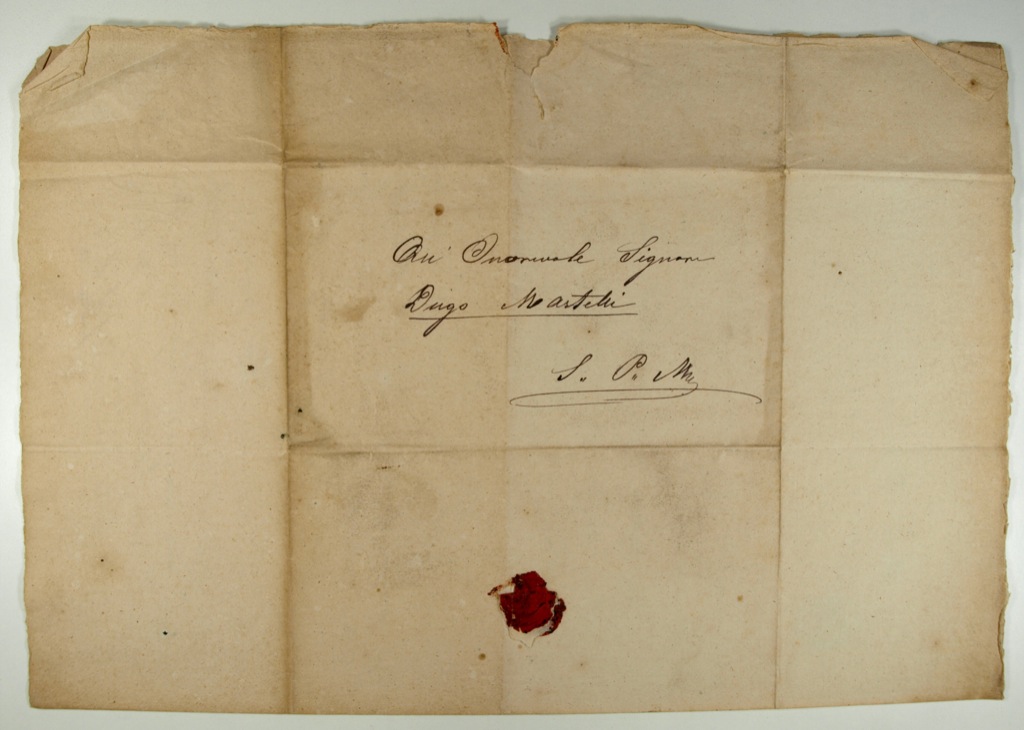 All' Onorevole Signore
Diego Martelli
S. P. M.